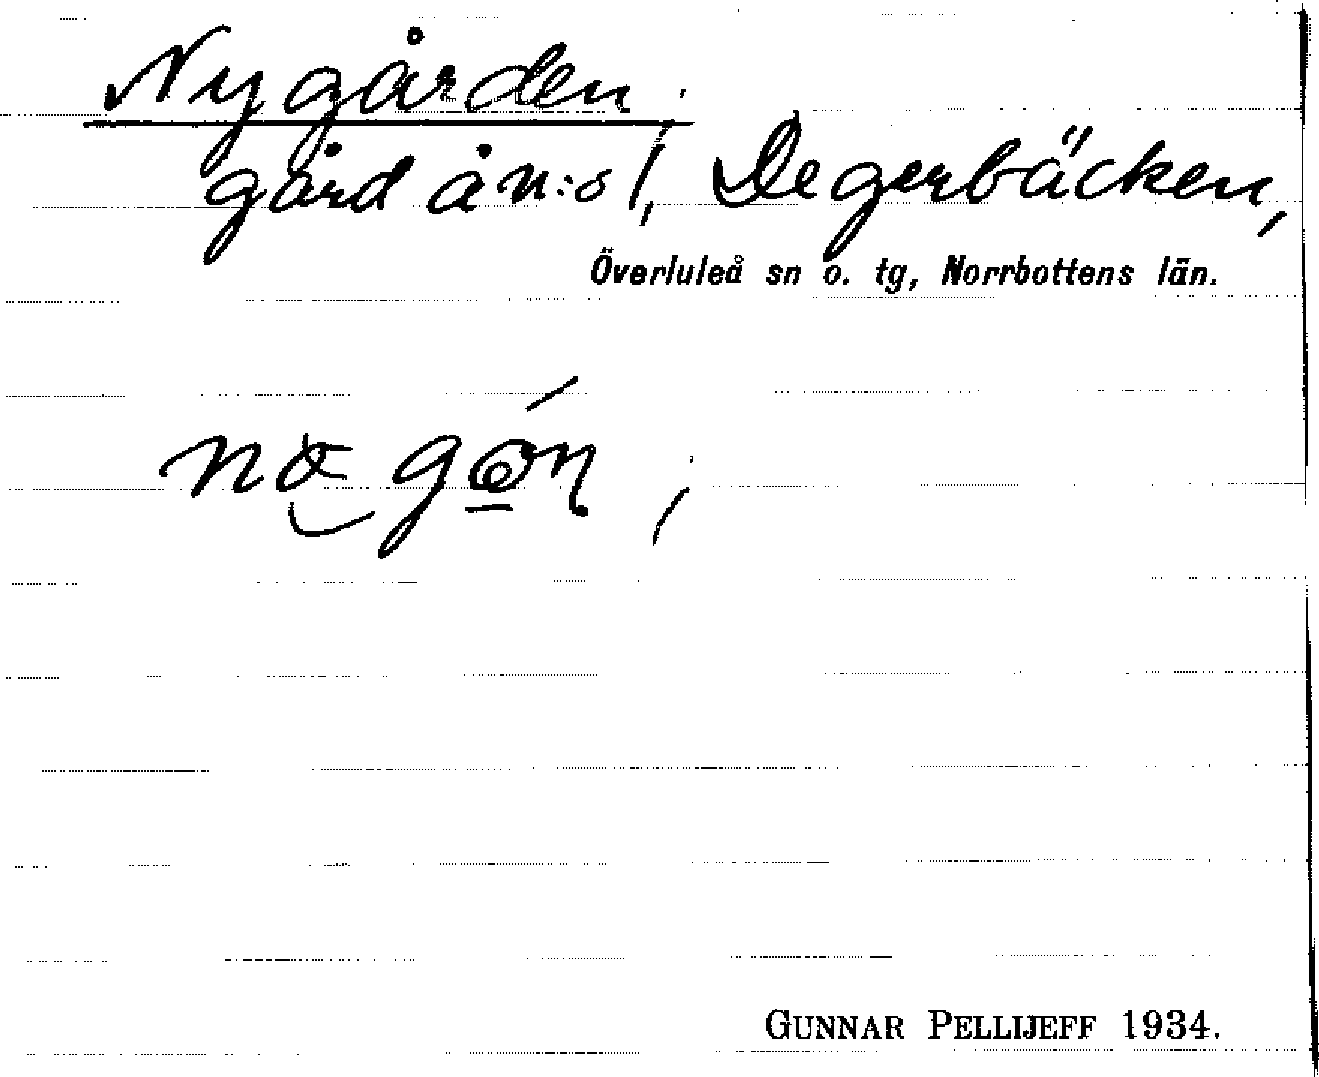 Nygården.
gård å n:o 1, Degerbäcken,
Överluleå sn o. tg, Norrbottens län.
GUNNAR PELLIJEFF 1934.